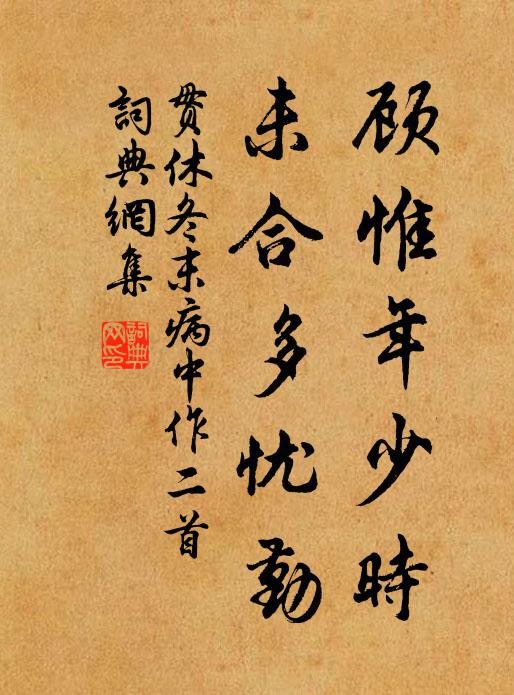 顾惟年少時
未合多忧勤
贯休冬末病中作二首
詞典網集
詞典网印